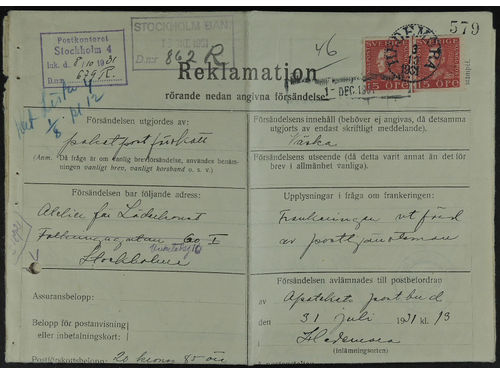 Postkontoret
Stockholm 4
Ink. d. 8/10 1931
D.nr 679 R.
STOCKHOLM BAN.
1931
D.nr 862 R
46
579
SVERIGE SVERIGE
15 ÖRE 15 ÖRE
HEDEMORA
1931
stämpel.
Reklamation
rörande nedan angivna försändelse.
1 - DEC. 1931
Försändelsen utgöres av:
paket postförskott
(Anm. Då fråga är om vanlig brevförsändelse, användes benäm-
ningen vanligt brev, vanligt korsband o. s. v.)
Försändelsens innehåll (behöver ej angivas, då detsamma
utgjorts av endast skriftligt meddelande).
Väska
Försändelsens utseende (då detta varit annat än det för
brev i allmänhet vanliga).
Försändelsen bar följande adress:
Atelier för Läderkonst
Folkungagatan 60 I
Stockholm
Upplysningar i fråga om frankeringen:
Frankeringen utförd
av posttjänsteman
Assuransbelopp:
Belopp för postanvisning
eller inbetalningskort:
Postförskottsbelopp: 20 kronor 85 öre
Försändelsen avlämnades till postbefordran
av Apotekets postbud
den 31 juli 1931 kl. 13
Hedemora
(inlämningsorten)